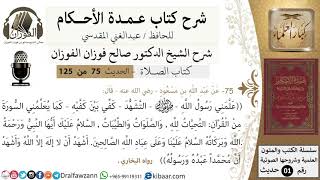 الفوزان
شرح كتاب عمدة الأحكام
للحافظ / عبدالغني المقدسي
شرح الشيخ الدكتور صالح فوزان الفوزان
كتاب الصلاة - الحديث 75 من 125
75- عَنْ عَبْدِ اللَّهِ بْنِ مَسْعُودٍ - رضي الله عنه - قال:
((عَلَّمَنِي رَسُولُ اللَّهِ ﷺ التَّشَهُّدَ - كَفِّي بَيْنَ كَفَّيْهِ - كَمَا يُعَلِّمُنِي السُّورَةَ
مِنْ الْقُرْآنِ: التَّحِيَّاتُ لِلَّهِ , وَالصَّلَوَاتُ وَالطَّيِّبَاتُ , السَّلَامُ عَلَيْكَ أَيُّهَا النَّبِيُّ وَرَحْمَةُ
اللَّهِ وَبَرَكَاتُهُ السَّلَامُ عَلَيْنَا وَعَلَى عِبَادِ اللَّهِ الصَّالِحِينَ. أَشْهَدُ أَنْ لَا إلَهَ إلَّا اللَّهُ وَأَشْهَدُ أَنَّ
مُحَمَّداً عَبْدُهُ وَرَسُولُهُ)) رواه البخاري .
سلسلة الكتب والمتون
العلمية وشروحها الصوتية
رقم 01 حديث
Draifawzann